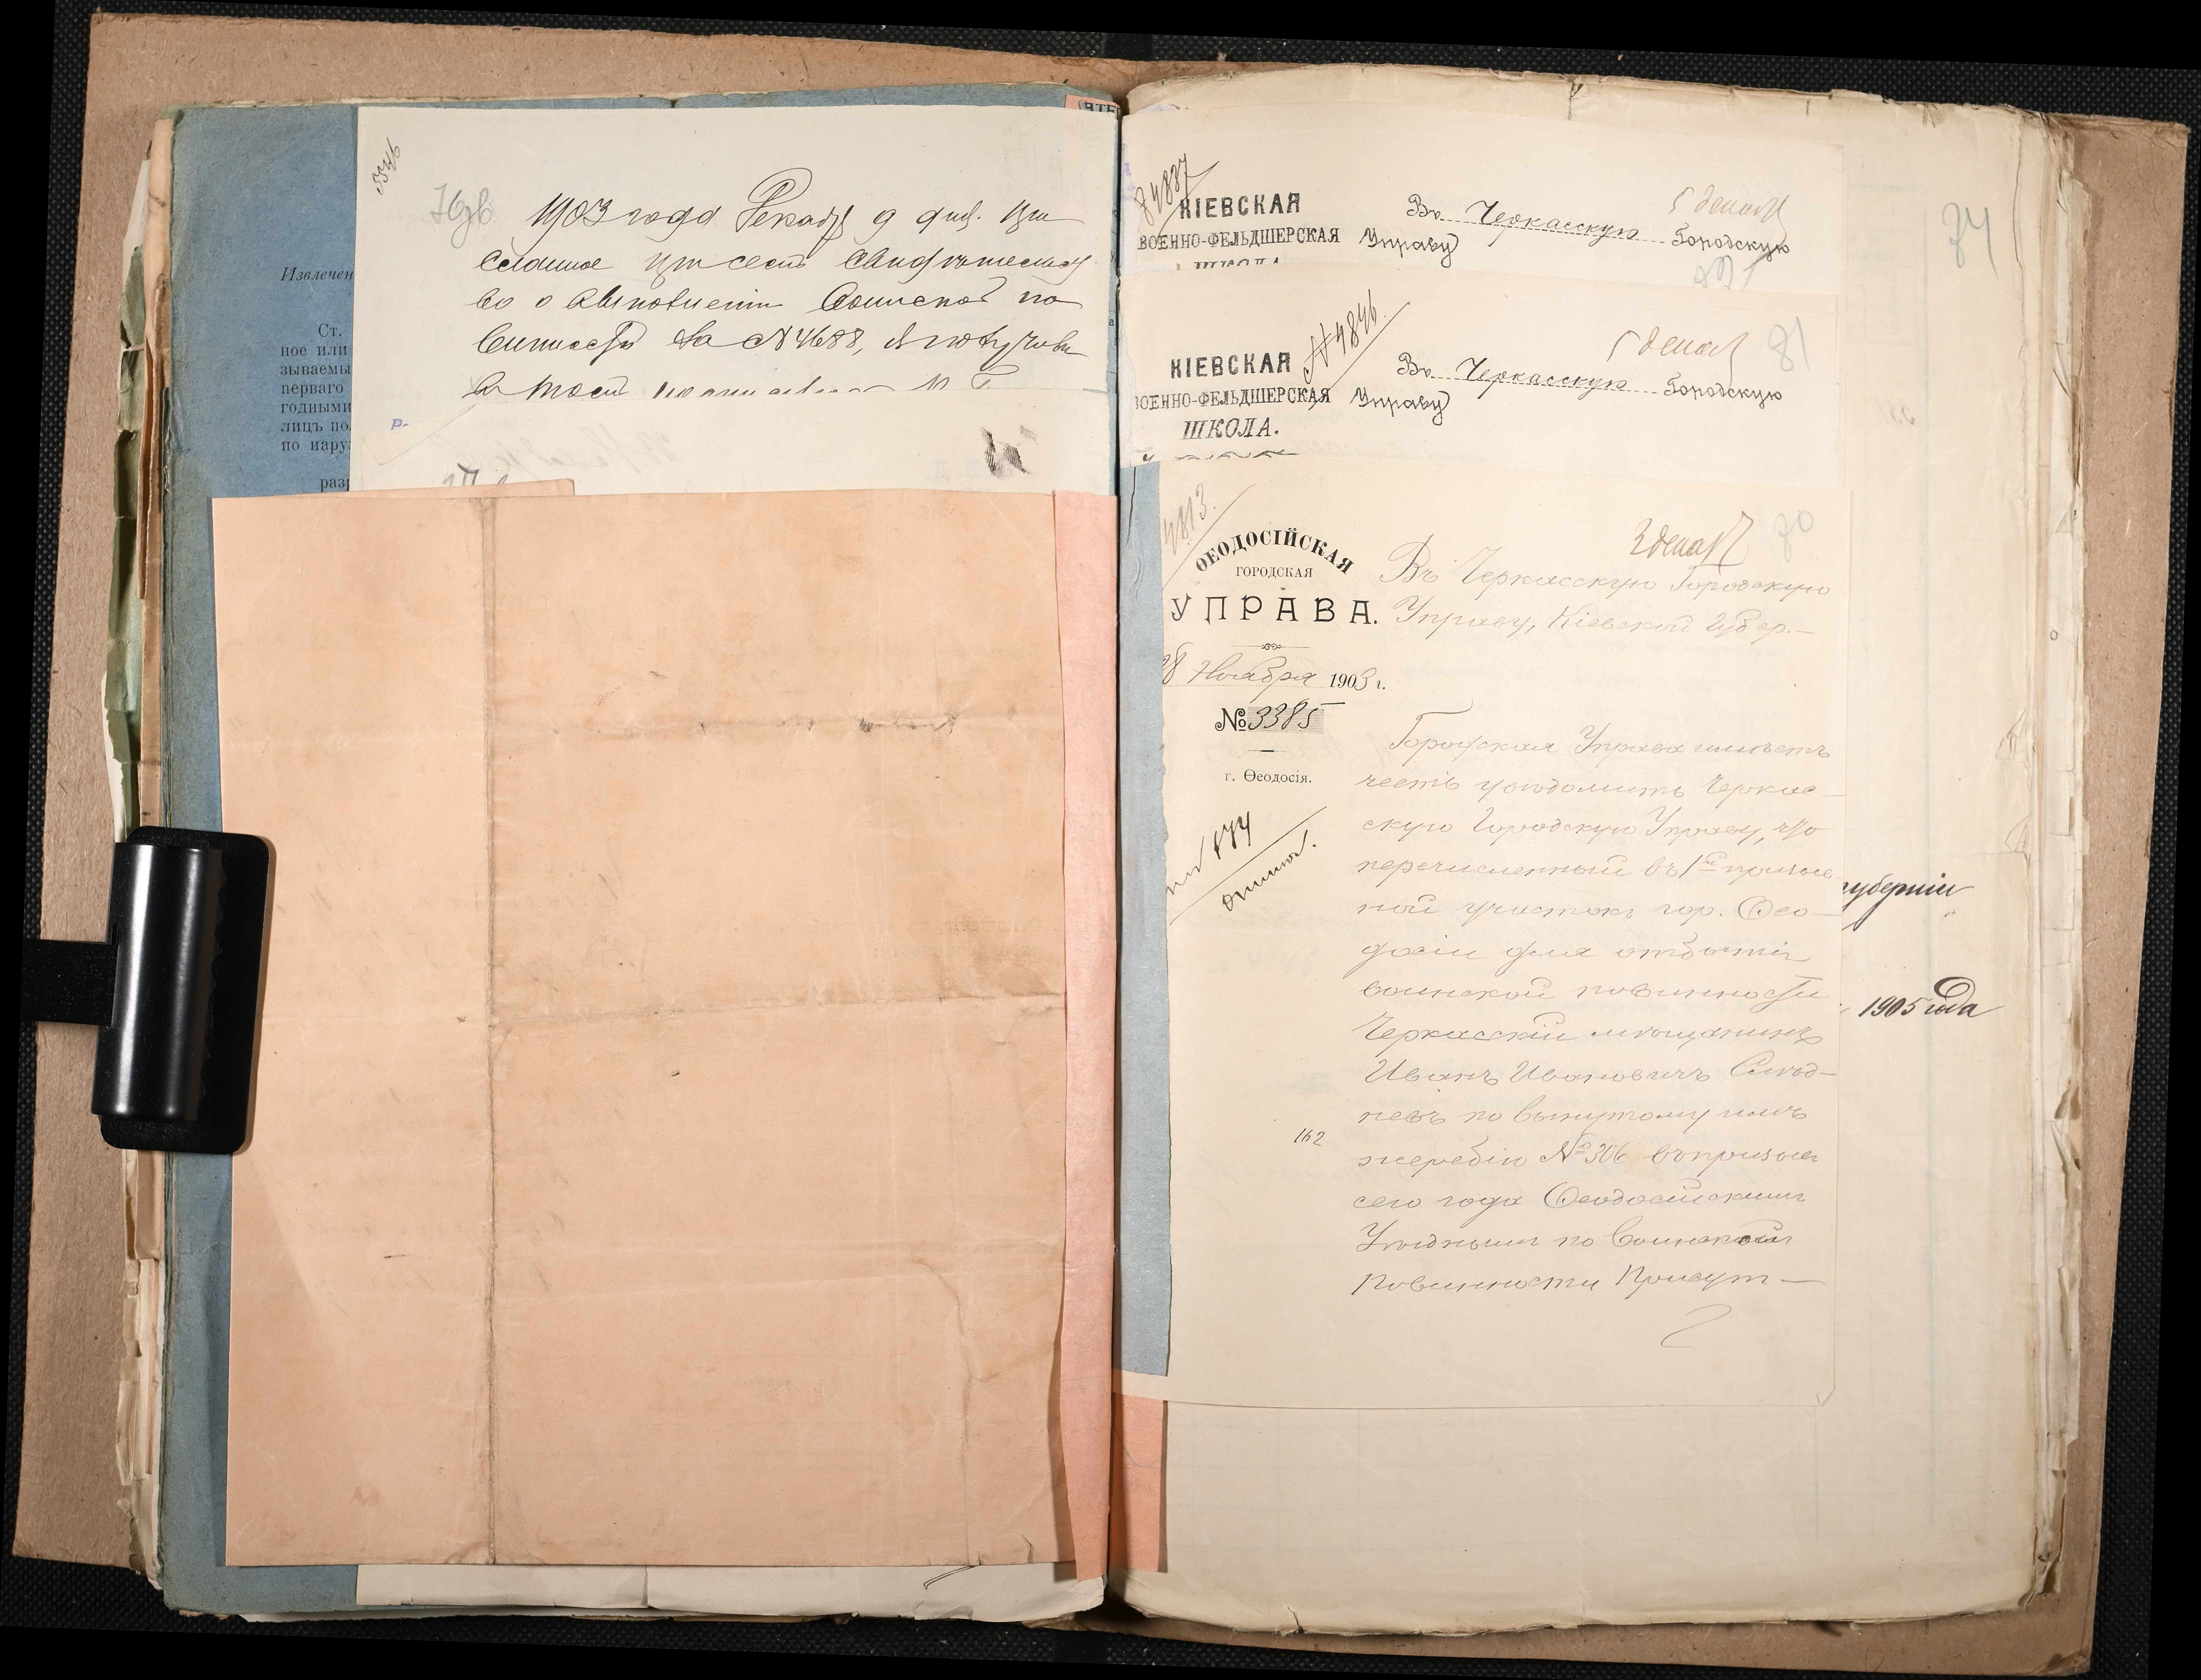 5546
1903 года Декабр 9 дня. При
сланное при семъ свидѣтельст
во о выполненіи воинской по
винности за № 4688, я получилъ
въ томъ
Извлечен
Ст.
ное или
зываемы
перваго
годными
лицъ по
по нару
разр
р.
№ 4887
КІЕВСКАЯ
ВОЕННО-ФЕЛЬДШЕРСКАЯ
ШКОЛА
5 декаб
Въ Черкасскую Городскую
Управу
74
№ 4846.
КІЕВСКАЯ
ВОЕННО-ФЕЛЬДШЕРСКАЯ
ШКОЛА.
5 декаб
81
Въ Черкасскую Городскую
Управу
4813.
ѲЕОДОСІЙСКАЯ
ГОРОДСКАЯ
УПРАВА.
28 Ноября 1903 г.
№ 3385
г. Ѳеодосія.
3 декаб
70
Въ Черкасскую Городскую
Управу, Кіевской Губер.—
Городская Управа имѣетъ
честь увѣдомить Черкас-
скую Городскую Управу, что
перечисленный въ 1й призыв-
ной участокъ гор. Ѳео-
досіи для отбытія
воинской повинности
Черкасскій мѣщанинъ
Иванъ Ивановичъ
по вынутому имъ
жеребію № 306 въ призывѣ
сего года Ѳеодосійскимъ
Уѣзднымъ по Воинской
Повинности Присут-
162
губерніи
1905 года